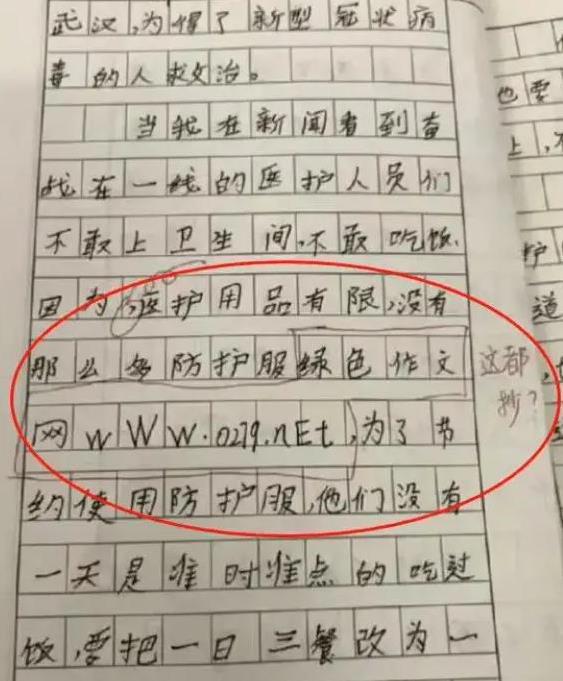 武汉,为得了新型冠状病
毒的人求救治。
当我在新闻看到奋
战在一线的医护人员们
不敢上卫生间,不敢吃饭.
因为,医护用品有限,没有
那么多防护服绿色作文
网wWW.0279.nEt,为了节
约使用防护服,他们没有
一天是准时准点的吃过
饭,要把一日三餐改为一
这都
抄?
也要
上,
护
道